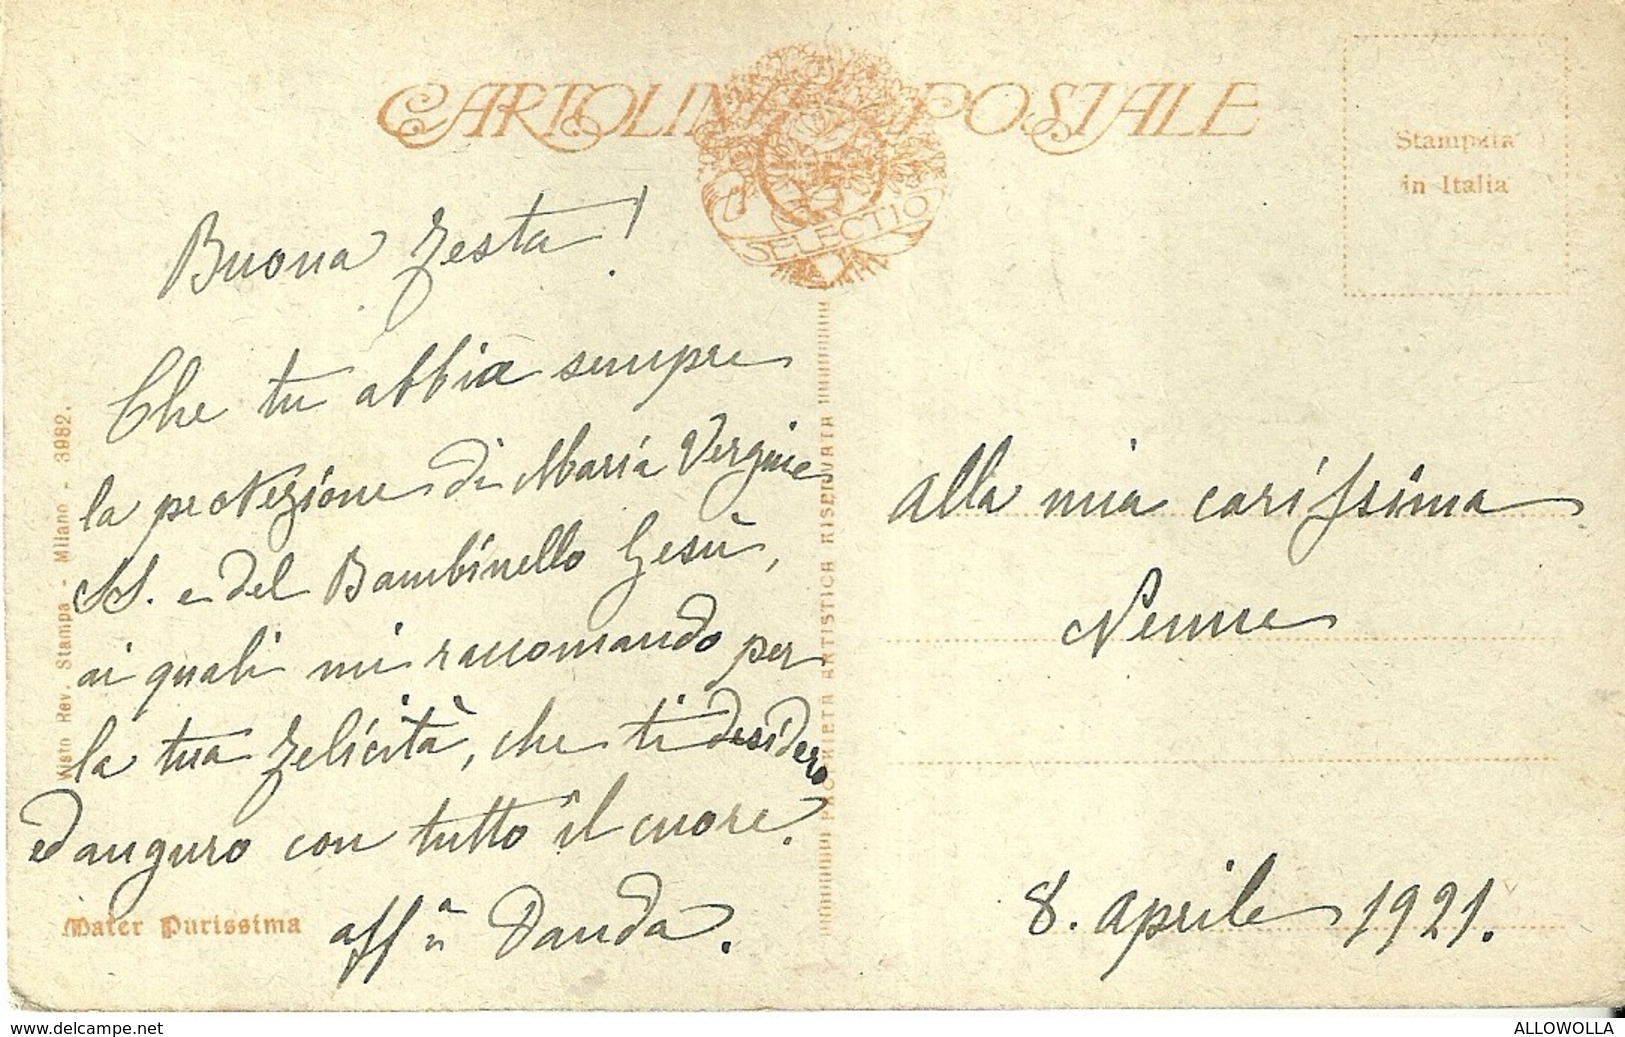 CARTOLINA POSTALE
SELECTIO
Stampata
in Italia
Buona festa!
Che tu abbia sempre
la protezione di Maria Vergine
SS. e del Bambinello Gesù,
ai quali mi raccomando per
la tua felicità, che ti desidero
ed auguro con tutto il cuore.
aff.ª
Mater Purissima
Visto Rev. Stampa - Milano - 3982.
PROPRIETA ARTISTICA RISERVATA
alla mia carissima
8. aprile 1921.
www.delcampe.net
ALLOWOLLA